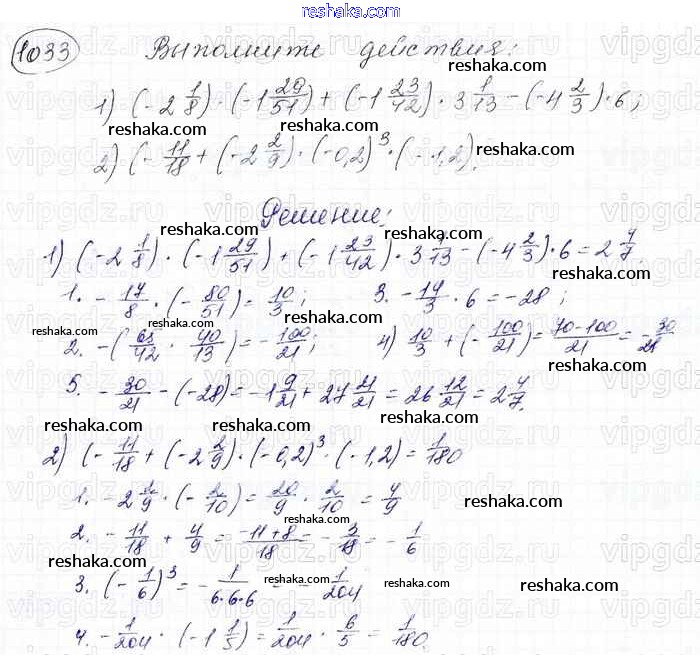 reshaka.com
1033 Выполните действия:
reshaka.com
1) (-2 1/8) · (-1 29/51) + (-1 23/42) · 3 1/13 - (-4 2/3) · 6;
reshaka.com reshaka.com
2) (-11/18 + (-2 2/9) · (-0,2)^3 · (-1,2).
reshaka.com
Решение:
reshaka.com
1) (-2 1/8) · (-1 29/51) + (-1 23/42) · 3 1/13 - (-4 2/3) · 6 = 2 4/7.
reshaka.com reshaka.com
1. -17/8 · (-80/51) = 10/3; 3. -14/3 · 6 = -28;
reshaka.com reshaka.com reshaka.com
2. -(65/42 · 40/13) = -100/21; 4) 10/3 + (-100/21) = 70-100/21 = -30/21
reshaka.com reshaka.com
5. -30/21 - (-28) = -1 9/21 + 27 21/21 = 26 12/21 = 2 4/7.
reshaka.com reshaka.com
2) (-11/18 + (-2 2/9) · (-0,2)^3 · (-1,2) = 1/180
reshaka.com
1. -2 2/9 · (-2/10) = 20/9 · 2/10 = 4/9
reshaka.com
2. -11/18 + 4/9 = -11+8/18 = -3/18 = -1/6
reshaka.com
3. (-1/6)^3 = -1/6·6·6 = -1/204
reshaka.com reshaka.com
4. -1/204 · (-1 1/5) = 1/204 · 6/5 = 1/180.
reshaka.com